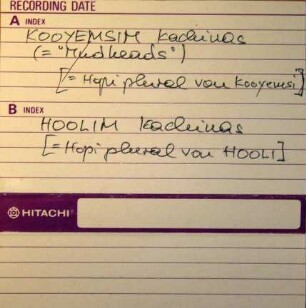 RECORDING DATE
A INDEX
KOOYEMSIM Kachinas
(= "Mudheads")
[= Hopi plural von Kooyemsi]
B INDEX
HOOLIM kachinas
[= Hopi plural von HOOLI]
HITACHI